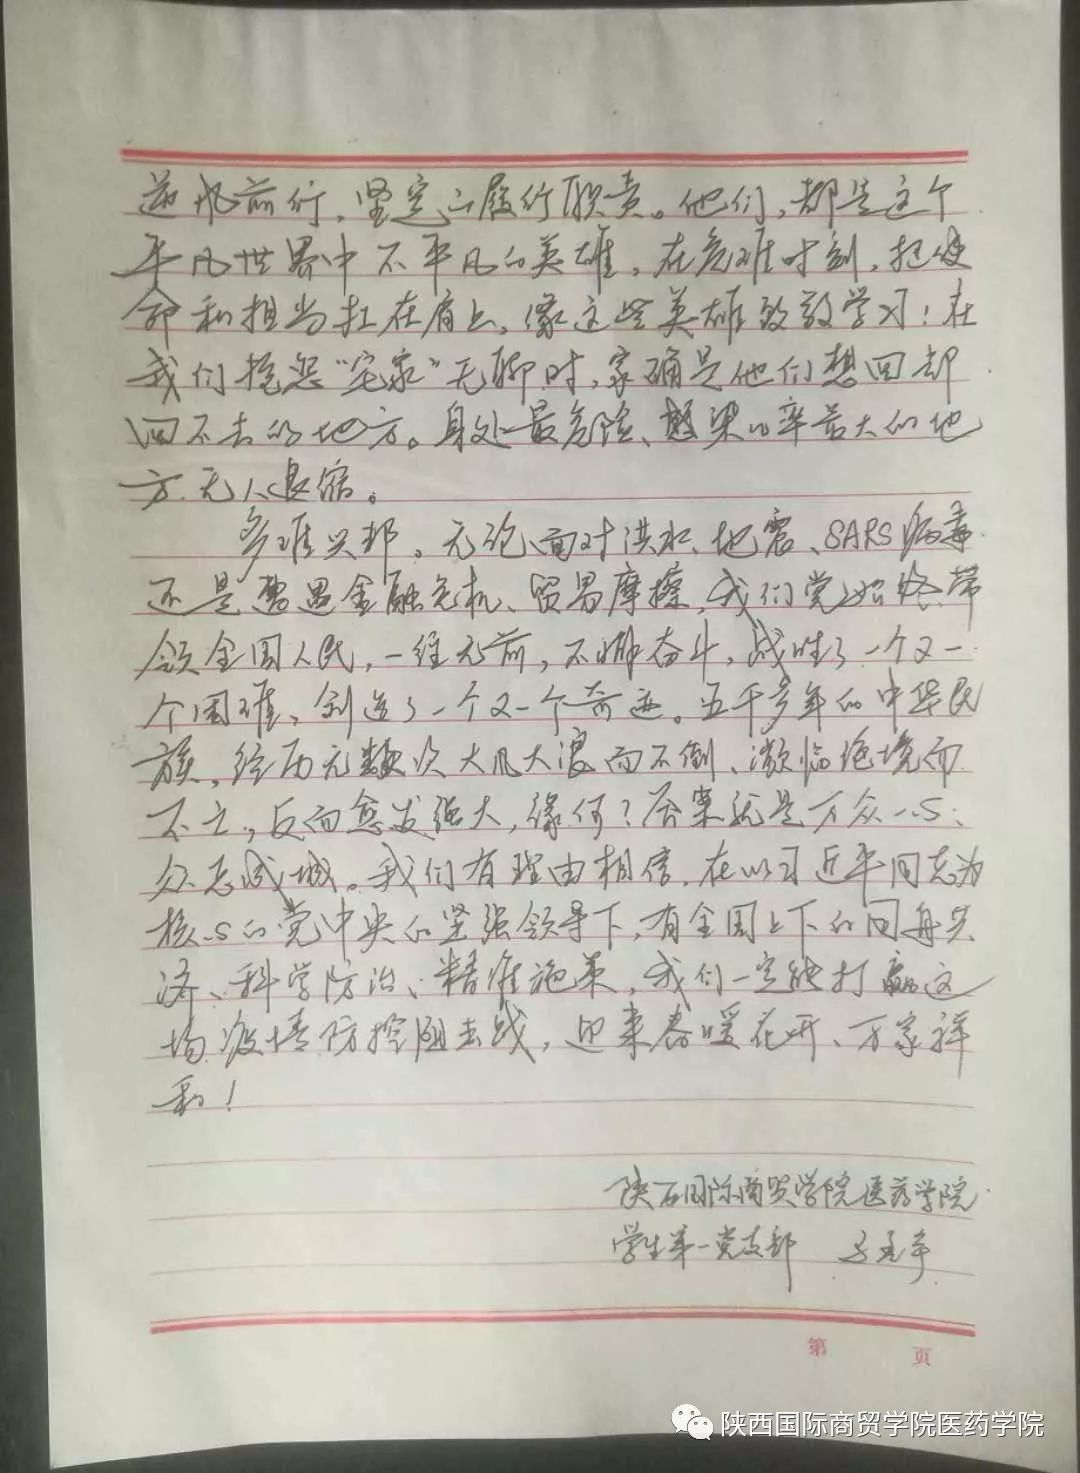 逆风前行，坚定的履行职责。他们，都是这个
平凡世界中不平凡的英雄，在危难时刻，把使
命和担当扛在肩上，像这些英雄致敬学习！在
我们抱怨“宅家”无聊时，家确是他们想回却
回不去的地方。身处最危险、感染的率最大的地
方无人退缩。
多难兴邦。无论面对洪水、地震、SARS病毒
还是遭遇金融危机、贸易摩擦，我们党始终带
领全国人民，一往无前，不懈奋斗，战胜了一个又一
个困难，创造了一个又一个奇迹。五千多年的中华民
族，经历无数次大风大浪而不倒、濒临绝境而
不亡，反而愈发强大，缘何？答案就是万众一心、
众志成城。我们有理由相信，在以习近平同志为
核心的党中央的坚强领导下，有全国上下的同舟共
济、科学防治、精准施策，我们一定能打赢这
场疫情防控阻击战，迎来春暖花开、万家祥
和！
陕西国际商贸学院医药学院
学生第一党支部
第 页
陕西国际商贸学院医药学院